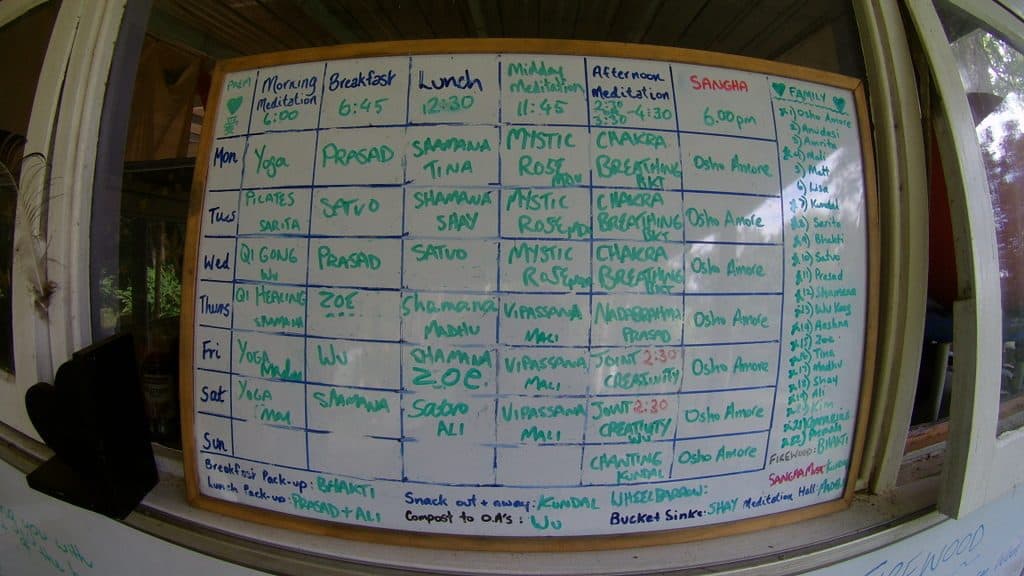 PREM
Morning Meditation 6:00
Breakfast 6:45
Lunch 12:30
Midday Meditation 11:45
Afternoon Meditation 2:30 3:30 -4:30
SANGHA 6.00pm
Mon
Yoga
PRASAD
SHAMANA TINA
MYSTIC ROSE MADHU
CHAKRA BREATHING BKT
Osho Amore
Tues
PILATES SARITA
SATVO
SHAMANA SHAY
MYSTIC ROSE
CHAKRA BREATHING BKT
Osho Amore
Wed
QI GONG WU
PRASAD
SATVO
MYSTIC ROSE
CHAKRA BREATHING BKT
Osho Amore
Thurs
QI HEALING SHAMANA
ZOE
Shamana MADHU
VIPASSANA MALI
NADABRAHMA PRASAD
Osho Amore
Fri
YOGA
WU
SHAMANA ZOE
VIPASSANA MALI
JOINT 2:30 CREATIVITY
Osho Amore
Sat
YOGA
SHAMANA
Satvo ALI
VIPASSANA MALI
JOINT 2:30 CREATIVITY WU
Osho Amore
Sun
CHANTING KUNDAL
Osho Amore
FAMILY
1) Osho Amore
2) Anudasi
3) Amrita
4) Mali
5) Matt
6) Lisa
7) Kundal
8) Sarita
9) Bhakti
10) Satvo
11) Prasad
12) Shamana
13) Wu Kong
14)
15) Zoe
16) Tina
17) Madhu
18) Shay
19) Ali
20) Kim
21)
22)
FIREWOOD: BHAKTI
SANGHA
Meditation Hall:
Breakfast Pack-up: BHAKTI
Lunch Pack-up: PRASAD + ALI
Snack out + away: KUNDAL
Compost to O.A's: WU
WHEELBARROW:
Bucket Sinks: SHAY
you with
FIREWOOD